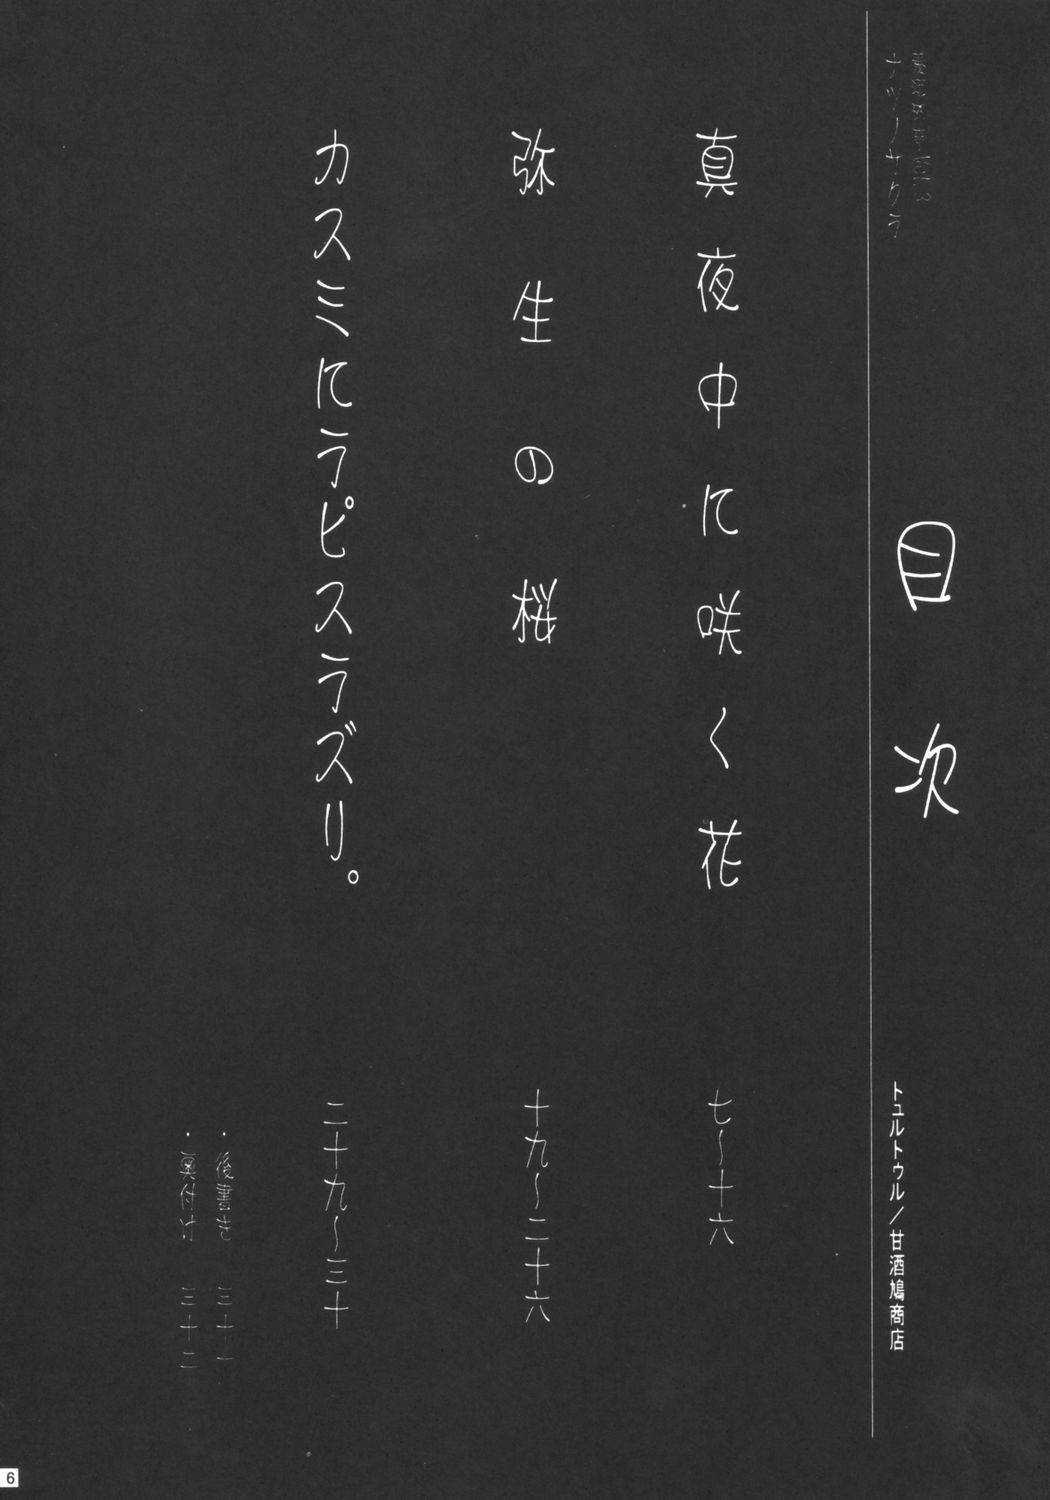 ナツノサクラ
目次
トュルトゥル／甘酒鳩商店
真夜中に咲く花 七～十六
弥生の桜 十九～二十六
カスミにラピスラズリ。 二十九～三十
・後書き 三十一
・奥付け 三十二
6